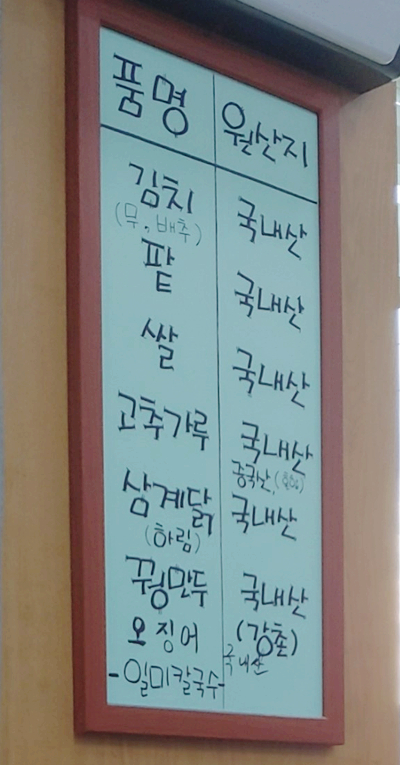 품명 원산지
김치 국내산
(무, 배추)
팥 국내산
쌀 국내산
고추가루 국내산
중국산
삼계닭 국내산
(하림)
꿩만두 국내산
(강촌)
오징어 국내산
-일미칼국수-